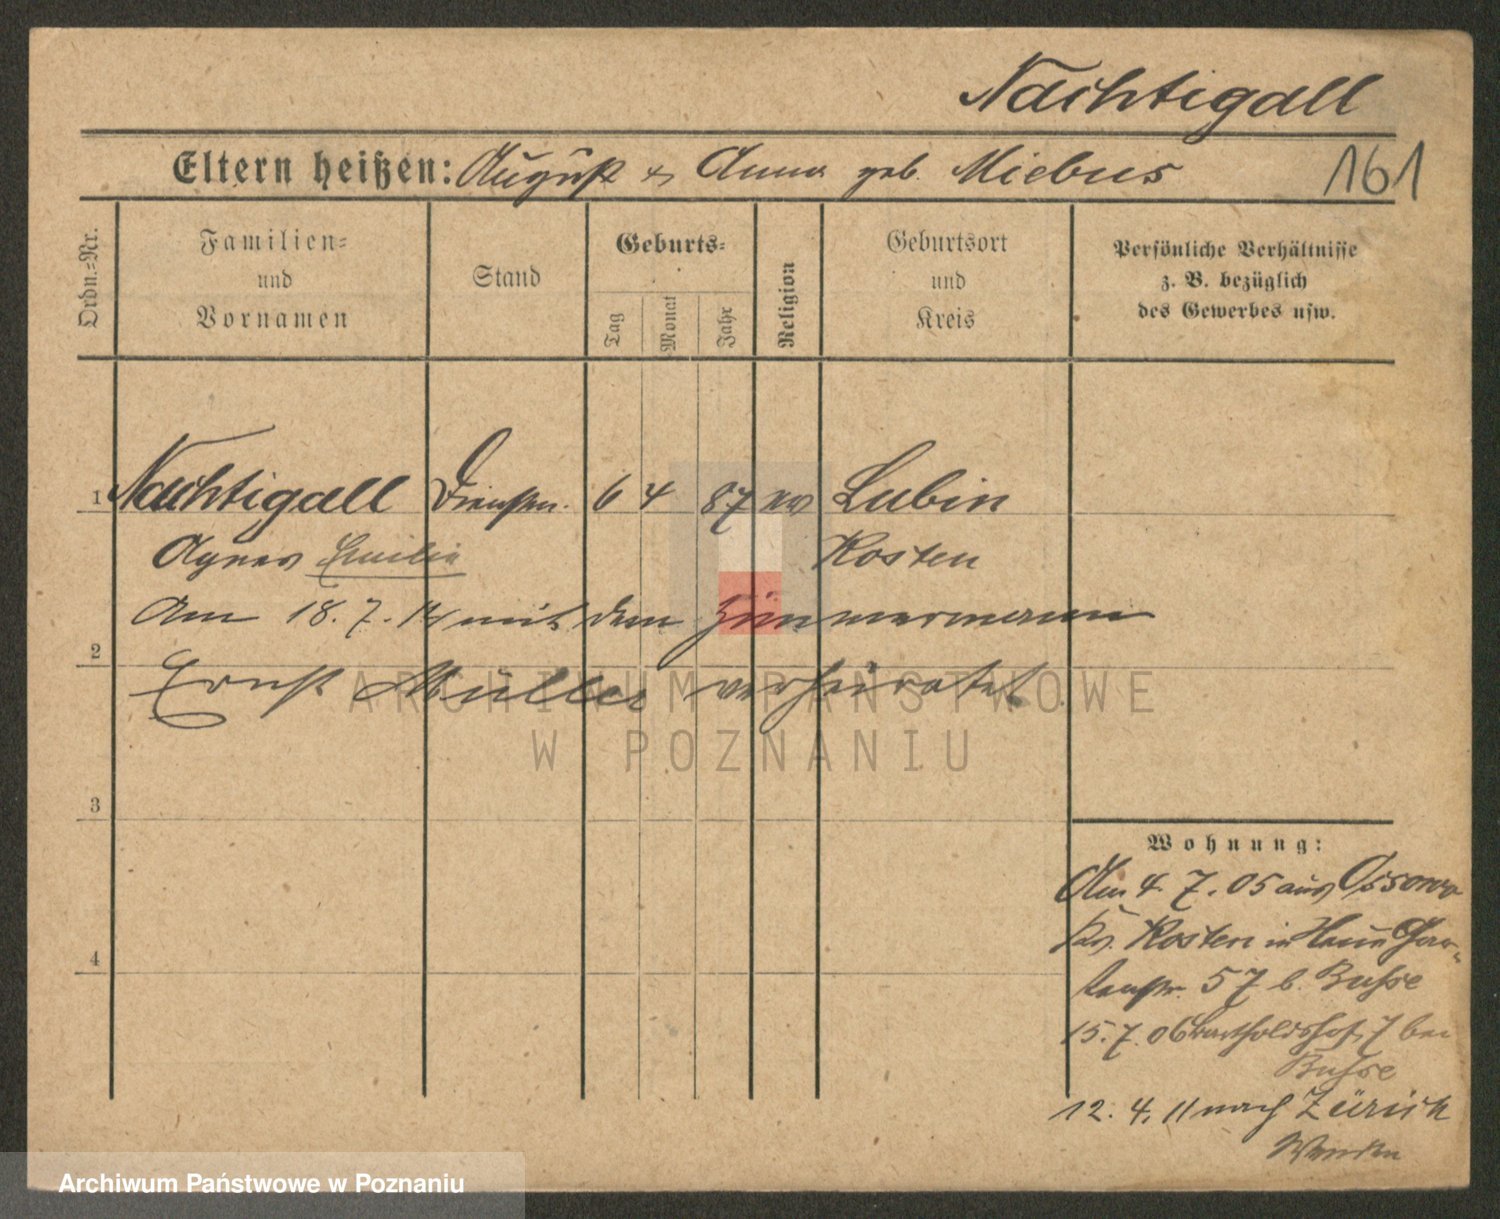 Nachtigall
Eltern heißen: August & Anna geb. Miebus
161
Ordn.=Nr.
Familien=
und
Vornamen
Stand
Geburts=
Tag
Monat
Jahr
Religion
Geburtsort
und
Kreis
Persönliche Verhältnisse
z. B. bezüglich
des Gewerbes usw.
1 Nachtigall Dienstm. 6 4 87 ev Lubin
Agnes Emilie Kosten
Am 18. 7. 14 mit dem Zimmermann
2
Ernst Müller verheiratet
ARCHIWUM PAŃSTWOWE
W POZNANIU
3
4
Wohnung:
Am 4. 7. 05 aus Ossowo
Krs. Kosten in Gar-
tenstr. 57 b. Buhse
15. 7. 06 Bartholdshof 7 bei
Buhse
12. 4. 11 nach Zürich
Archiwum Państwowe w Poznaniu